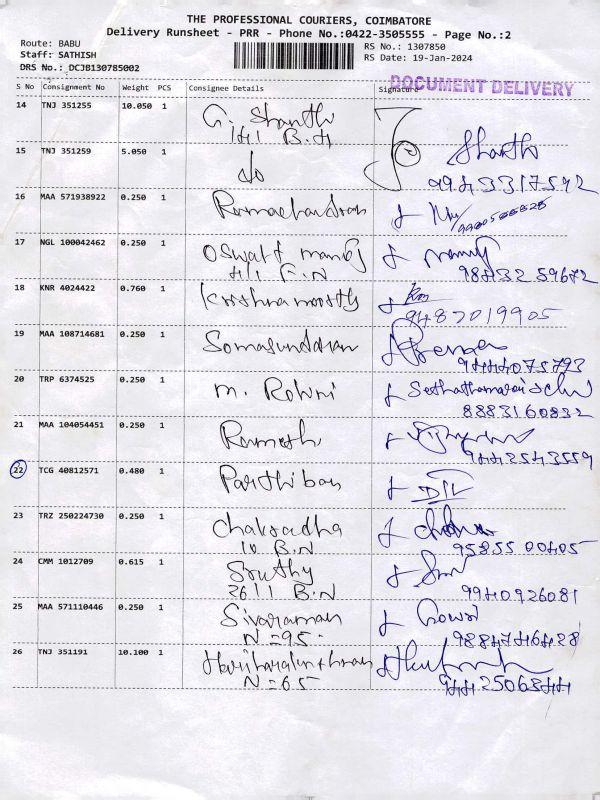 THE PROFESSIONAL COURIERS, COIMBATORE
Delivery Runsheet - PRR - Phone No.:0422-3505555 - Page No.:2
Route: BABU
Staff: SATHISH
DRS No.: DCJB130785002
RS No.: 1307850
RS Date: 19-Jan-2024
DOCUMENT DELIVERY
S No Consignment No Weight PCS Consignee Details Signature
14 TNJ 351255 10.050 1 G. Shanthi
141 B.H
15 TNJ 351259 5.050 1 do Shanthi
9943317592
16 MAA 571938922 0.250 1 Ramachandran
17 NGL 100042462 0.250 1 Oswalt manoj
411 F.N 98432 59672
18 KNR 4024422 0.760 1 Krishnamoorthy
9487019905
19 MAA 108714681 0.250 1 Somasundaram
9444075793
20 TRP 6374525 0.250 1 M. Rohini
8883160832
21 MAA 104054451 0.250 1 Ramesh
9442543559
22 TCG 40812571 0.480 1 Parthiban
23 TRZ 250224730 0.250 1 Chakradha
10 B.N 95855 00405
24 CMM 1012709 0.615 1
2611 B.N 9940926081
25 MAA 571110446 0.250 1 Sivaraman Gowri
N=95 9884746428
26 TNJ 351191 10.100 1
N=65 9442506844